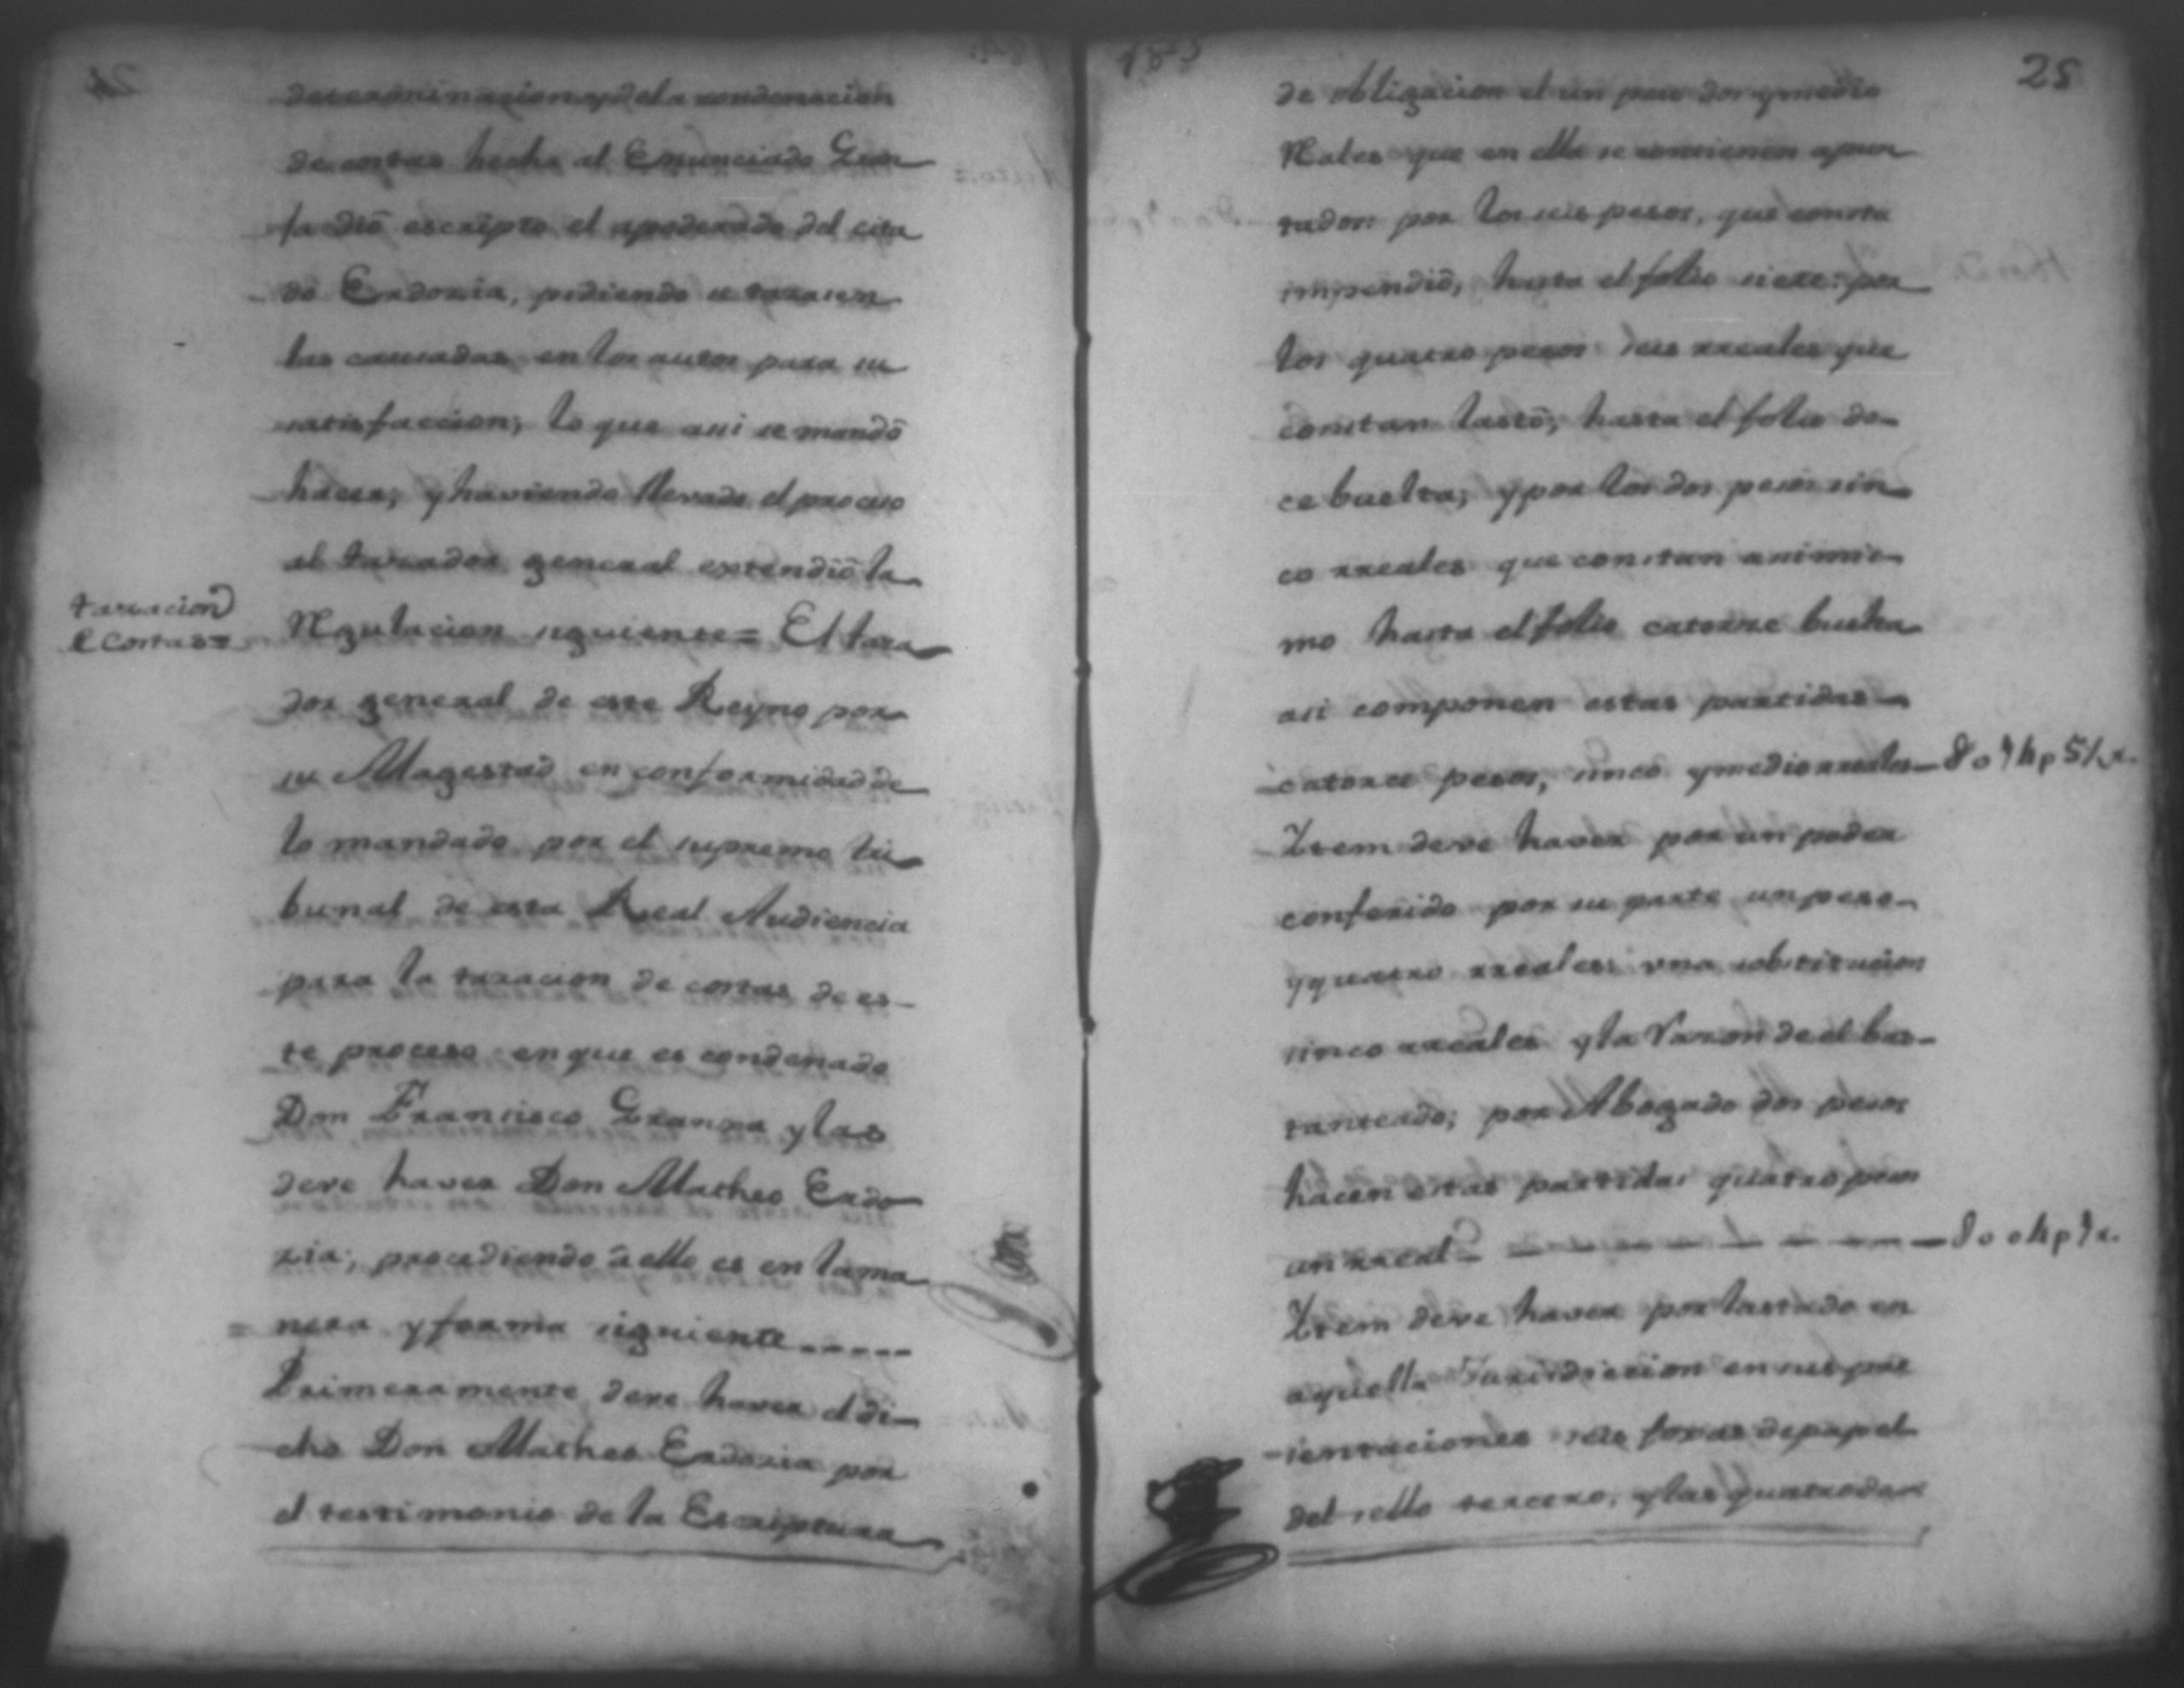 determinacion, y de la condenacion
de costas hecha al Enunciado Gran
fa dió escripto el apoderado del cita
do Erdozia, pidiendo se tarasen
las causadas en los autos para su
satisfaccion; lo que asi se mandó
hacer; y haviendo llevado el proceso
al tarador general extendió la
taracion
Regulacion siguiente = El tara
de costas =
dor general de este Reyno por
su Magestad en conformidad de
lo mandado por el supremo tri
bunal de esta Real Audiencia
para la taracion de costas de es-
te proceso en que es condenado
Don Francisco Granxa y las
deve haver Don Matheo Erdo
zia; procediendo á ello es en la ma
nera y forma siguiente
Primeramente deve haver el di-
cho Don Matheo Erdozia por
el testimonio de la Escriptura
185
25
de obligacion el un peso dos y medio
Reales que en ella se contienen apun
tados: por los seis pesos, que consta
impendió, hasta el folio siete: por
los quatro pesos seis rreales que
constan lastó, hasta el folio do-
ce buelta; y por los dos pesos sin
co rreales que constan asimis-
mo hasta el folio catorze buelta
asi componen estas partidas
catorce pesos, sinco y medio rreales
Item deve haver por un poder
conferido por su parte un peso
y quatro rreales: una substitucion
sinco rreales y la Razon de el bas-
tanteado; por Abogado dos pesos
hacen estas partidas quatro pesos
un rreal
Item deve haver por lastado en
aquella Jurisdiccion en sus pre
sentaciones seis foxas de papel
del sello tercero, y las quatro de